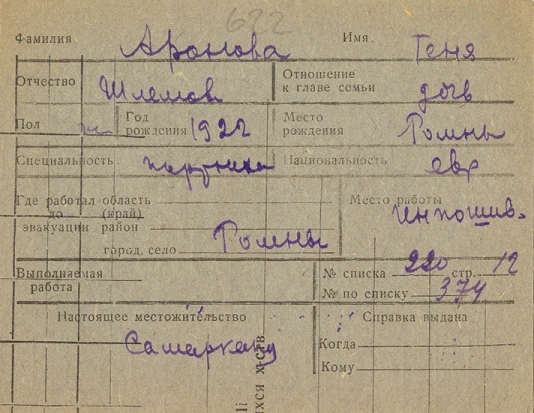 622
Фамилия Аронова Имя. Геня
Отчество Шлемов Отношение к главе семьи дочь
Пол ж Год рождения 1922 Место рождения Ромны
Специальность Национальность евр
Где работал область
до (край)
эвакуации район
город, село Ромны
Место работы Инпошив.
Выполняемая работа
№ списка 220 стр. 12
№ по списку 374
Настоящее местожительство
Самарканд
Справка выдана
Когда
Кому